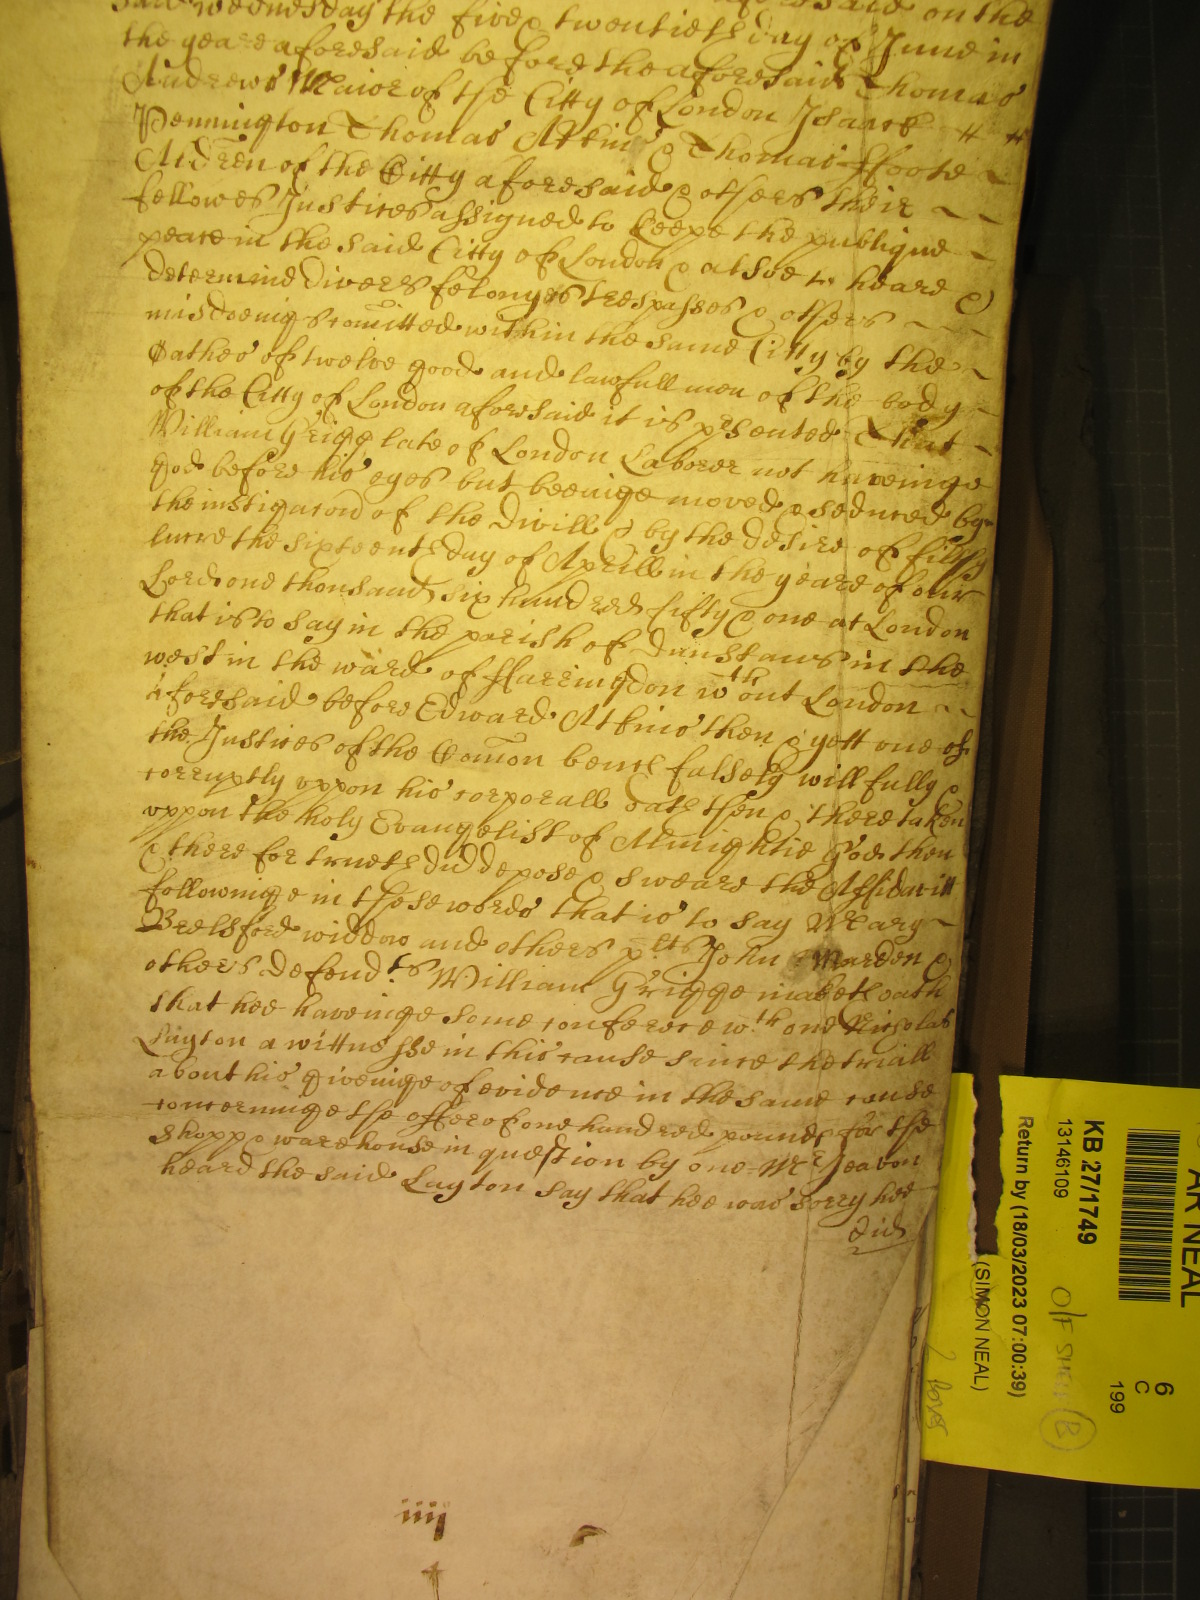 said Wednesday the five & twentieth day of June in
the yeare aforesaid before the aforesaid Thomas
Andrewes Maior of the Citty of London Isaack
Pennington Thomas Atkins & Thomas Foote
Aldren of the Citty aforesaid & others their
fellowes Justices assigned to keepe the publique
peace in the said Citty of London & alsoe to heare &
determine Divers felonyes trespasses & others
misdoeings comitted within the same Citty by the
oathes of twelve good and lawfull men of the body
of the Citty of London aforesaid it is psented That
William Grigg late of London Laborer not haveinge
god before his eyes but beeinge moved & seduced by
the instigacon of the Divill & by the desire of filthy
lucre the sixteenth day of Aprill in the yeare of our
Lord one thousand six hundred fifty & one at London
that is to say in the parish of Dunstans in the
west in the ward of Farringdon wthout London
aforesaid before Edward Atkins then & yett one of
the Justices of the Comon bench falsely willfully &
corruptly uppon his corporall oath then & there taken
uppon the holy Evangelist of Almightie God then
& there for trueth did depose & sweare the Affidavitt
followinge in these words that is to say Mary
Brelsford widdow and others plts John Marden &
others defendts William Grigge maketh oath
that hee haveinge some conference wth one Nicholas
Layton a wittnesse in this cause since the triall
about his giveinge of evidence in the same cause
concerninge the offer of one hundred pounds for the
shopp & warehouse in question by one Mr Yeavon
heard the said Layton say that hee was sorry hee
did
iiij
AR NEAL
6
C
199
KB 27/1749
13146109
O/F SHELF (B)
Return by (18/03/2023 07:00:39)
(SIMON NEAL)
2 boxes